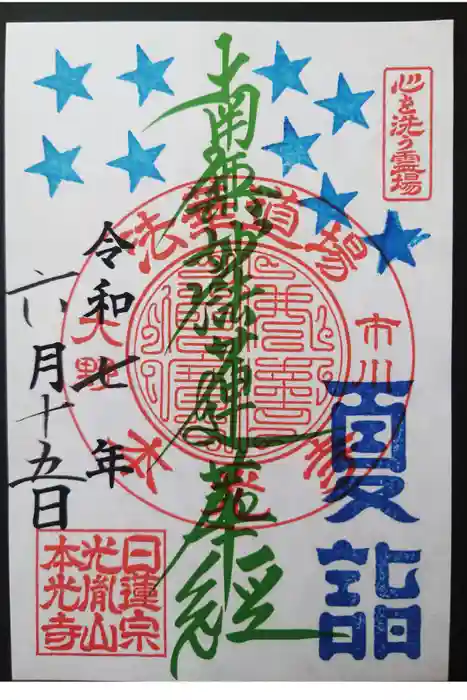 心を洗う霊場
南無妙法蓮華経
法華道場
市川
大野
本光寺
夏詣
令和七年
六月十五日
日蓮宗
光胤山
本光寺